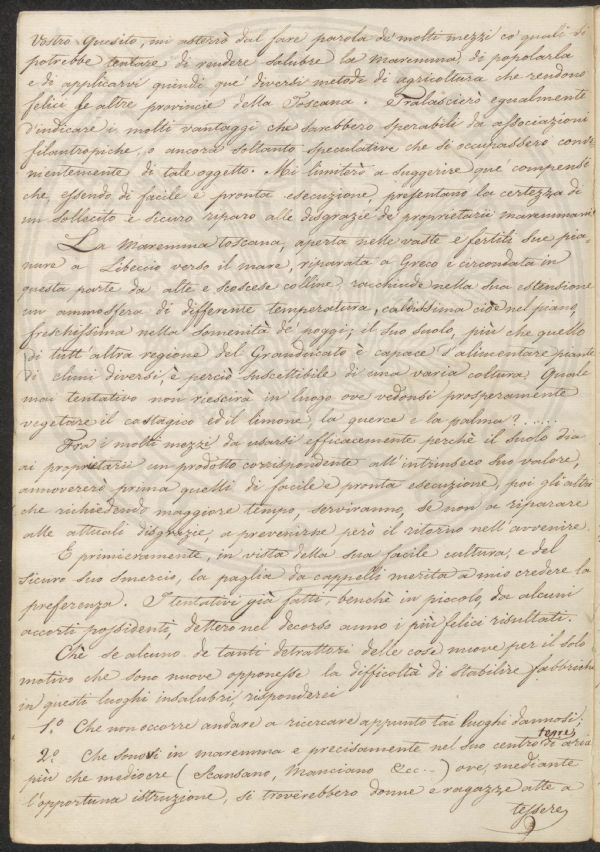 Vostro Quesito, mi asterrò dal fare parola de' molti mezzi co' quali si
potrebbe tentare di rendere salubre la Maremma, di popolarla
e di applicarvi quindi que' diversi metodi di agricoltura che rendono
felici le altre provincie della Toscana. Tralascierò egualmente
d'indicare i molti vantaggi che sarebbero sperabili da associazioni
filantropiche, o ancora soltanto speculative che si occupassero
mentemente di tale oggetto. Mi limiterò a suggerire que' compensi
che, essendo di facile e pronta esecuzione, presentano la certezza di
un sollecito e sicuro riparo alle disgrazie de' proprietarii maremmani
La Maremma toscana, aperta nelle vaste e fertili sue pia-
nure a Libeccio verso il mare, riparata a Greco e circondata in
questa parte da alte e scoscese colline, racchiude nella sua estensione
un ammosfera di differente temperatura, caldissima cioè nel piano,
freschissima nella somenità de' poggi; il suo suolo, più che quello
di tutt'altra regione del Granducato è capace d'alimentare piante
di climi diversi, è perciò suscettibile di una varia coltura. Quale
mai tentativo non riescirà in luogo ove vedonsi prosperamente
vegetare il castagno ed il limone, la querce e la palma? ......
Fra i molti mezzi da usarsi efficacemente perchè il suolo dia
ai proprietarii un prodotto corrispondente all'intrinseco suo valore,
annovererò prima quelli di facile e pronta esecuzione, poi gli altri
che richiedendo maggiore tempo, serviranno, se non a riparare
alle attuali disgrazie, a prevenirne però il ritorno nell'avvenire.
E primieramente, in vista della sua facile cultura, e del
sicuro suo smercio, la paglia da cappelli merita a mio credere la
preferenza. I tentativi già fatti, benchè in piccolo, da alcuni
accorti possidenti, dettero nel decorso anno i più felici risultati.
Chè se alcuno de tanti detrattori delle cose nuove per il solo
motivo che sono nuove opponesse la difficoltà di stabilire fabbriche
in questi luoghi insalubri, risponderei
1.º Che non occorre andare a ricercare appunto tai luoghi dannosi;
2.º Che sonovi in maremma e precisamente nel suo centro terre di aria
più che mediocre (Scansano, Manciano &c..) ove, mediante
l'opportuna istruzione, si troverebbero donne e ragazze atte a
tessere